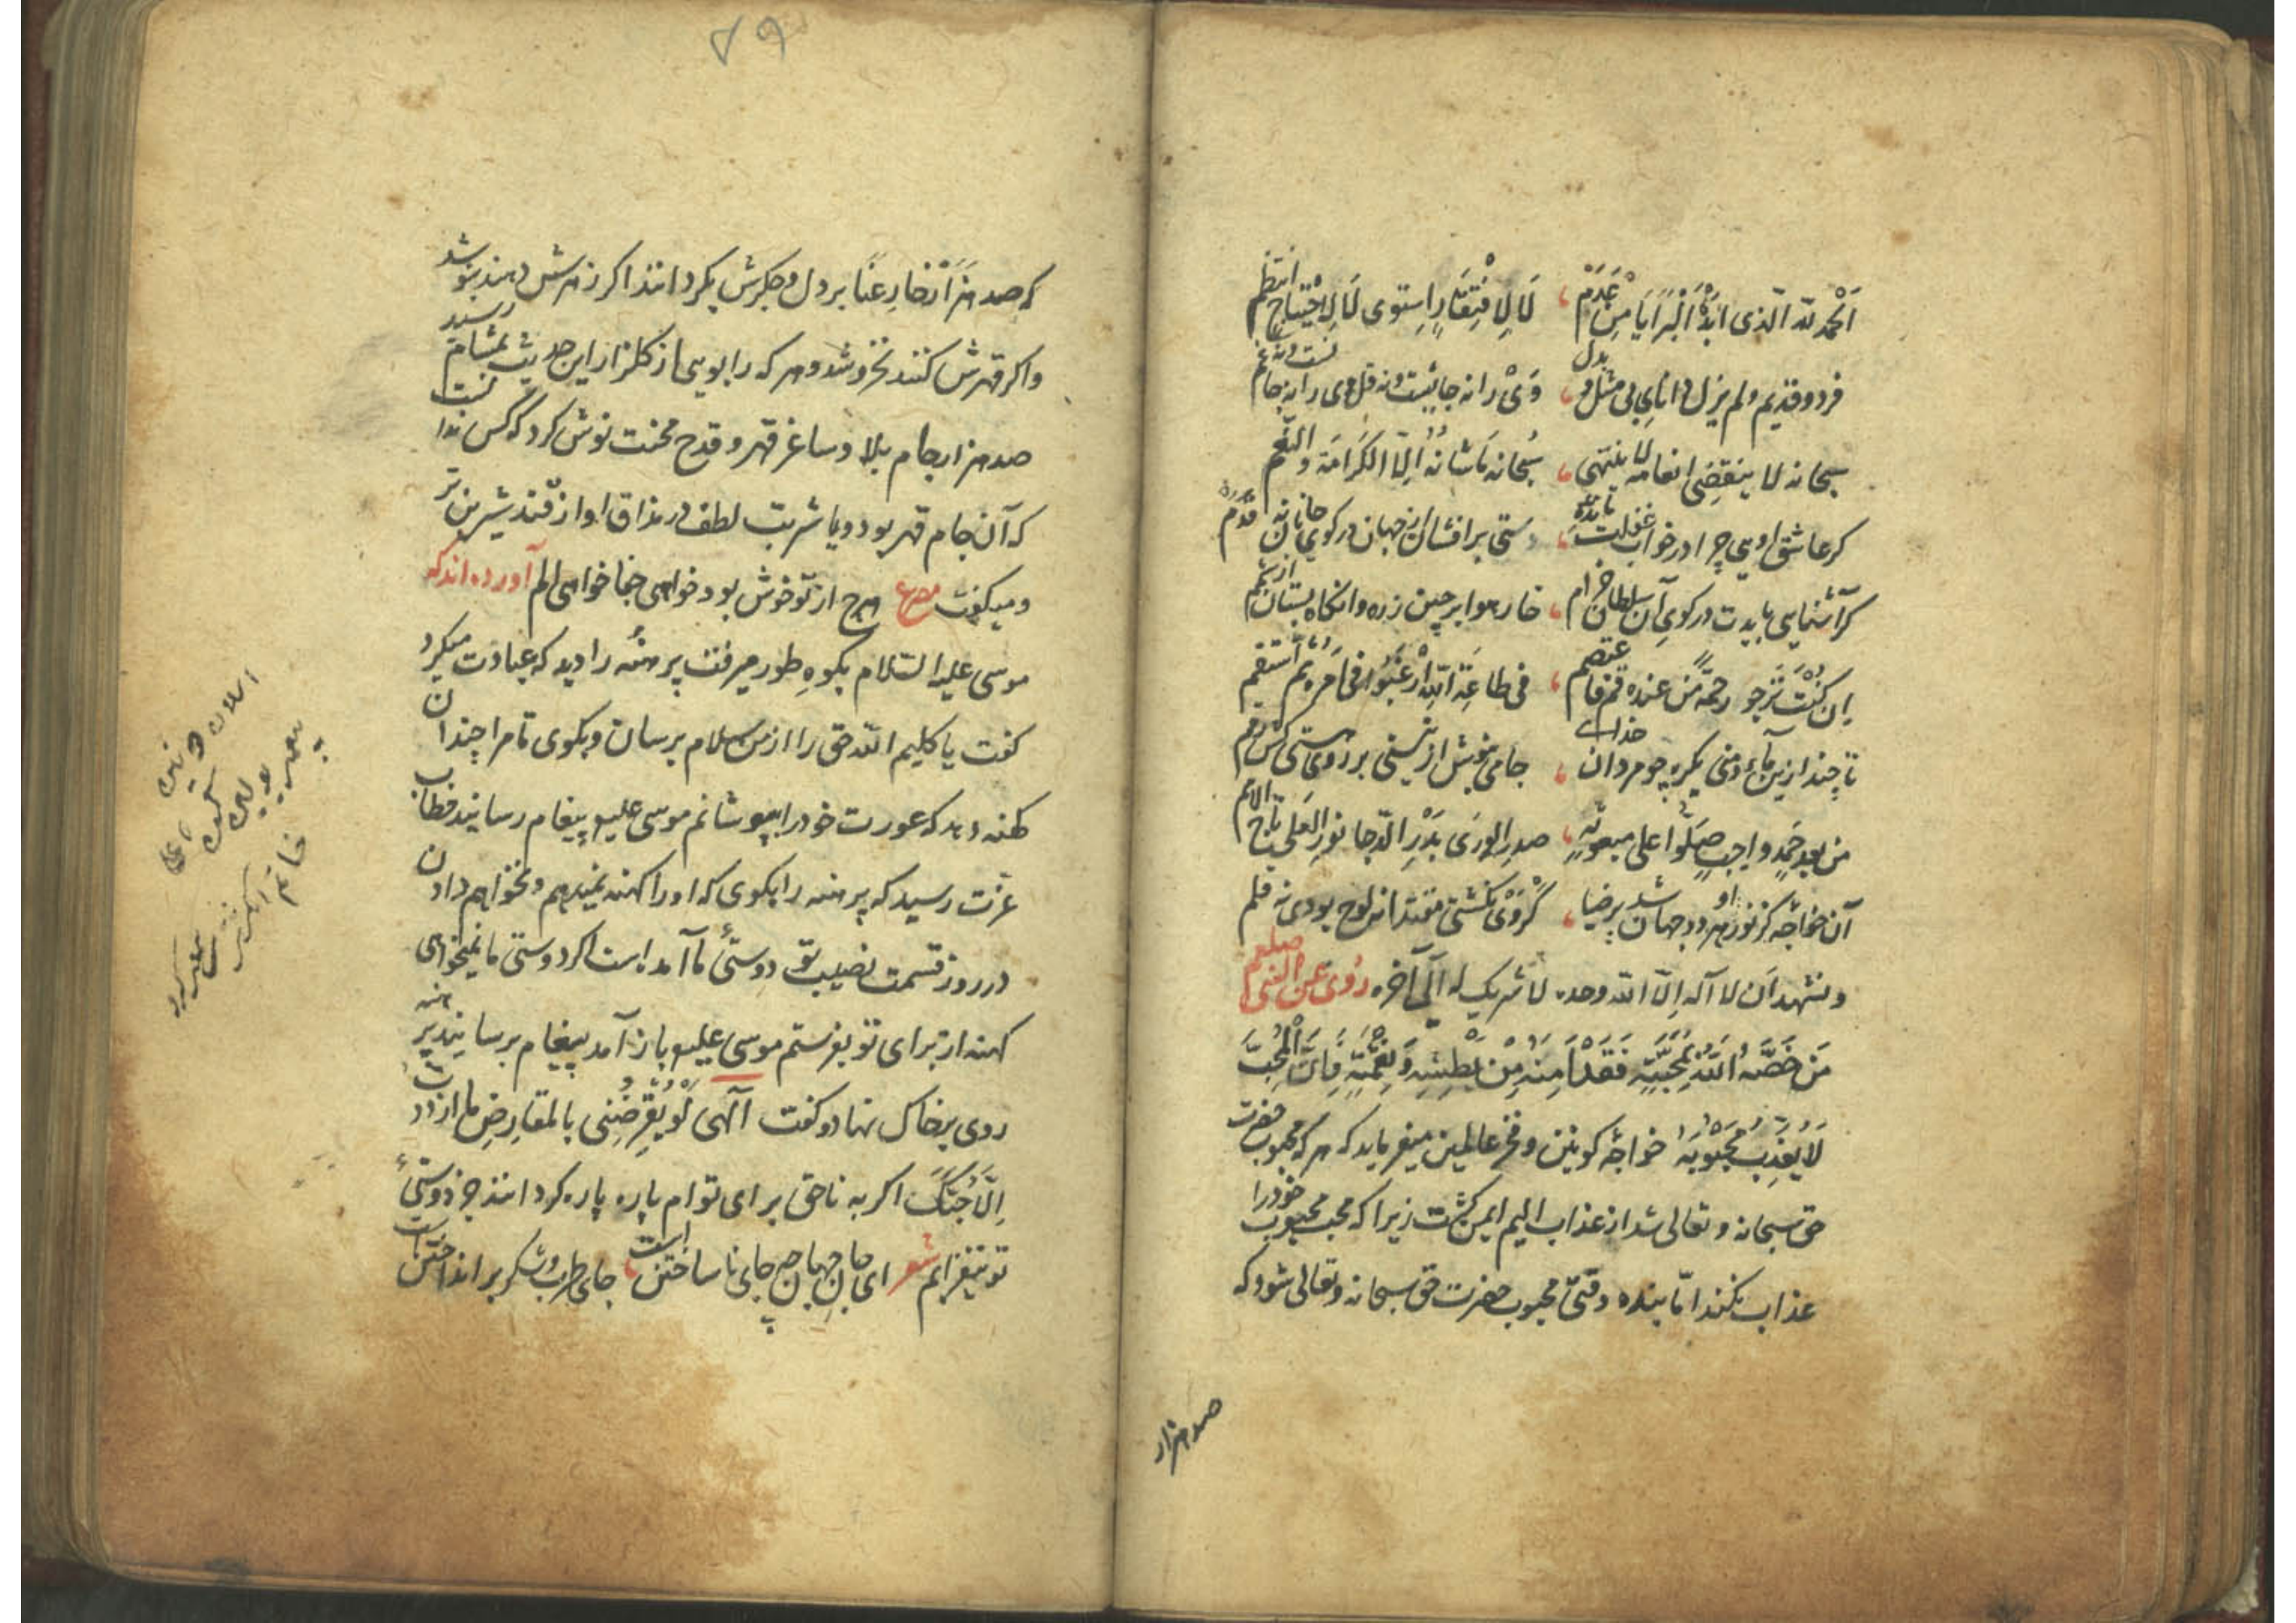 اَلْحَمْدُ للّه الّذی اَبْدَأَ الْبَرَایَا مِنْ عَدَمْ ، لَا لِافْتِقَارٍ اِستوی لَا لِاحْتِیَاجٍ انتظم
فرد و قدیم و لم یزل دانای بی مثل و بدل ، وَیْ را نه جائیست و نه قل وی را نه خا نست و نه غم
سبحانه لا ینقضی انعامه لا ینتهی ، سُبحانه مَا شانُهُ اِلّا الکَرَامَة و النِّعَم
کر عاشق اویی چرا در خواب غفلت مانده ، دستی برافشان زجهان در کوی جانان نه قدم
کر آشنایی بایدت در کوی آن سلطان خرام ، خار هوا برچین زره وانکاه بستان
اِن کُنْتَ تَرْجُو رحمةً مِن عنده قم فاعتصم ، فی طاعَةِ اللّه ارْغَبُوا فی اَمْرِه ثم استقم
تا چند ازین ما و منی یکره چو مردان خدای ، جامی بنوش از نیستی بر روی هستی کش رقم
من بعد حَمْدٍ واجبٍ صَلُّوا علی مبعوثه ، صدرِ الوری بَدْرِ الدّجا نور العُلی تاج الامم
آن خواجه کز نور او هر دو جهان شد پر ضیا ، کر وَیْ نکشتی مقتدا نی لوح بودی نه قلم
و نشهد اَن لا اله اِلّا اللّه وحده لا شریک له الی آخره روی عن النبی صلعم
مَن خَصَّهُ اللّهُ بِمَحَبَّتِهِ فَقَدْ اَمِنَهُ مِنْ بَطْشِهِ وَ نِقْمَتِهِ فَاِنَّ الْمُحِبَّ
لَا یُعَذِّبُ مَحْبُوْبَهُ خواجهٔ کونین و فخر عالمین میفرماید که هر که محبوب حضرت
حق سبحانه و تعالی شد از عذاب الیم ایمن کشت زیرا که محب محبوب خود را
عذاب نکند امّا بنده وقتی محبوب حضرت حق سبحانه و تعالی شود که
صد هزار
که صد هزار خار عنا بر دل و جکرش بکردانند اکر زهرش دهند بنوشد
و اکر قهرش کنند نخروشد و هر که را بویی از کلزار این حدیث بمشام رسید
صد هزار جام بلا و ساغر قهر و قدح محنت نوش کرد که کس ندانست
که آن جام قهر بود و یا شربت لطف در مذاق او از قند شیرین تر
و میکفت مصرع هرچ از تو خوش بود خواهی جفا خواهی الم آورده اند که
موسی علیه السّلام بکوهِ طور میرفت برهنهٔ را دید که عبادت میکرد
کفت یا کلیم اللّه حق را از من سلام برسان و بکوی تا مرا چندان
کهنه دهد که عورت خود را بپوشانم موسی علیه پیغام رسانید خطاب
عزت رسید که برهنه را بکوی که او را کهنه نمیدهم و نخواهم دادن
در روز قسمت نصیب تو دوستیٔ ما آمده است اکر دوستی ما نمیخواهی
کهنه از برای تو بفرستم موسی علیه باز آمد پیغام برسانید برهنه
روی بر خاک نهاد و کفت الهی لَوْ تُقْرِضُنی بالمقارِض ما ازددت
اِلّا حُبَّکَ اکر به ناحق برای تو ام پاره پاره کردانند جز دوستیٔ
تو نیفزایم شعر ای جانِ جهان چه جای نا ساختن است ، جای طرب و شکر برانداختن است